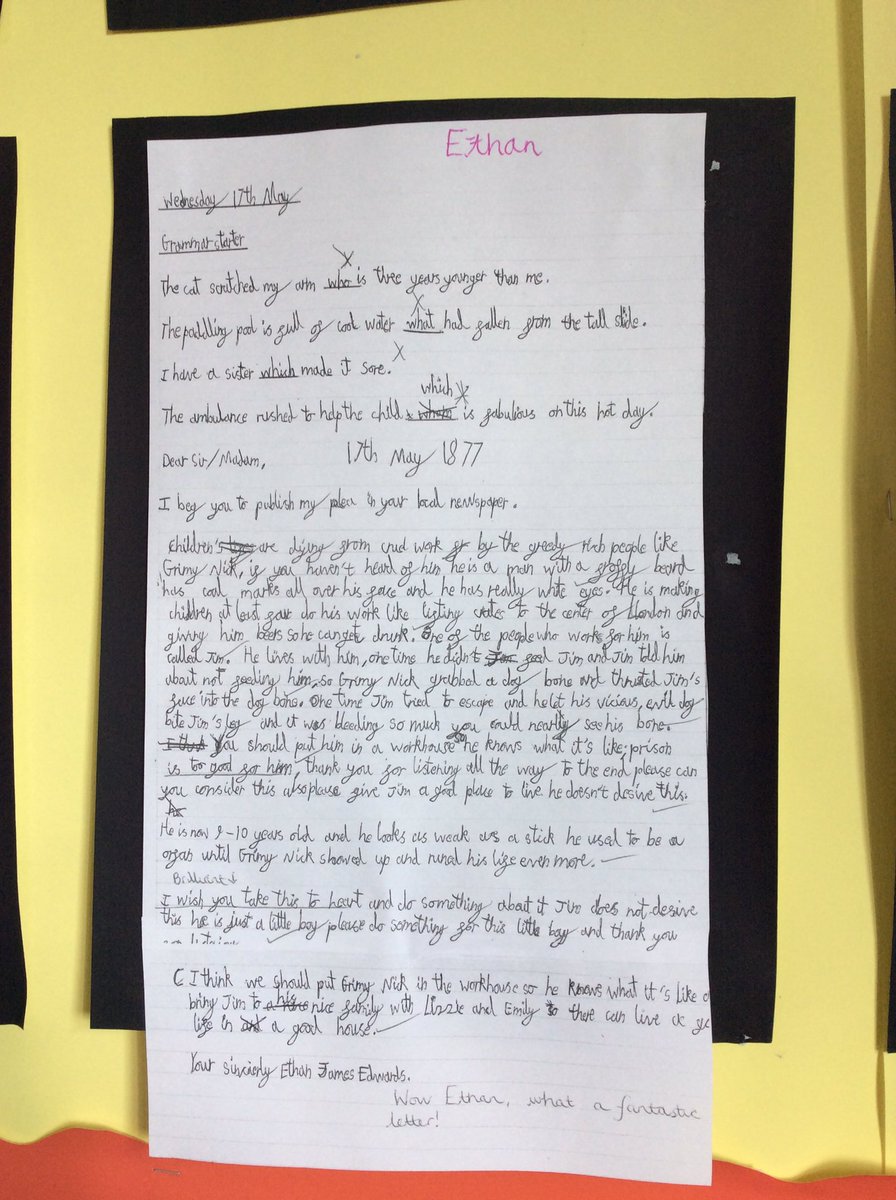 Ethan
Wednesday 17th May
Grammar starter
The cat scratched my arm who is three years younger than me.
The paddling pool is full of cool water what had fallen from the tall slide.
I have a sister which made it sore.
which
The ambulance rushed to help the child is fabulious on this hot day.
Dear Sir/Madam, 17th May 1877
I beg you to publish my plea in your local newspaper.
Children's are dying from crud work by the greedy rich people like
Grimy Nick, if you haven't heard of him he is a man with a beard
has coal marks all over his face and he has really white eyes. He is making
children at least do his work like lifting crates to the center of London and
giving him beers so he can get drunk. One of the people who works for him is
called Jim. He lives with him, one time he didn't feed Jim and Jim told him
about not feeding him, so Grimy Nick grabbed a dog bone and thrusted Jim's
face into the dog bone. One time Jim tried to escape and he let his vicious, evil dog
bite Jim's leg and it was bleeding so much you could nearly see his bone.
You should put him in a workhouse so he knows what it's like; prison
is too good for him, thank you for listening all the way to the end please can
you consider this also please give Jim a good place to live he doesn't desive this.
He is now 9-10 years old and he looks as weak as a stick he used to be a
organ until Grimy Nick showed up and runed his life even more.
Brilliant
I wish you take this to heart and do something about it Jim does not desive
this he is just a little boy please do something for this little boy and thank you
C I think we should put Grimy Nick in the workhouse so he knows what it's like
bring Jim to his nice family with Lizzie and Emily so there can live
life in a good house.
Your sincierly Ethan James Edwards.
Wow Ethan, what a fantastic
letter!